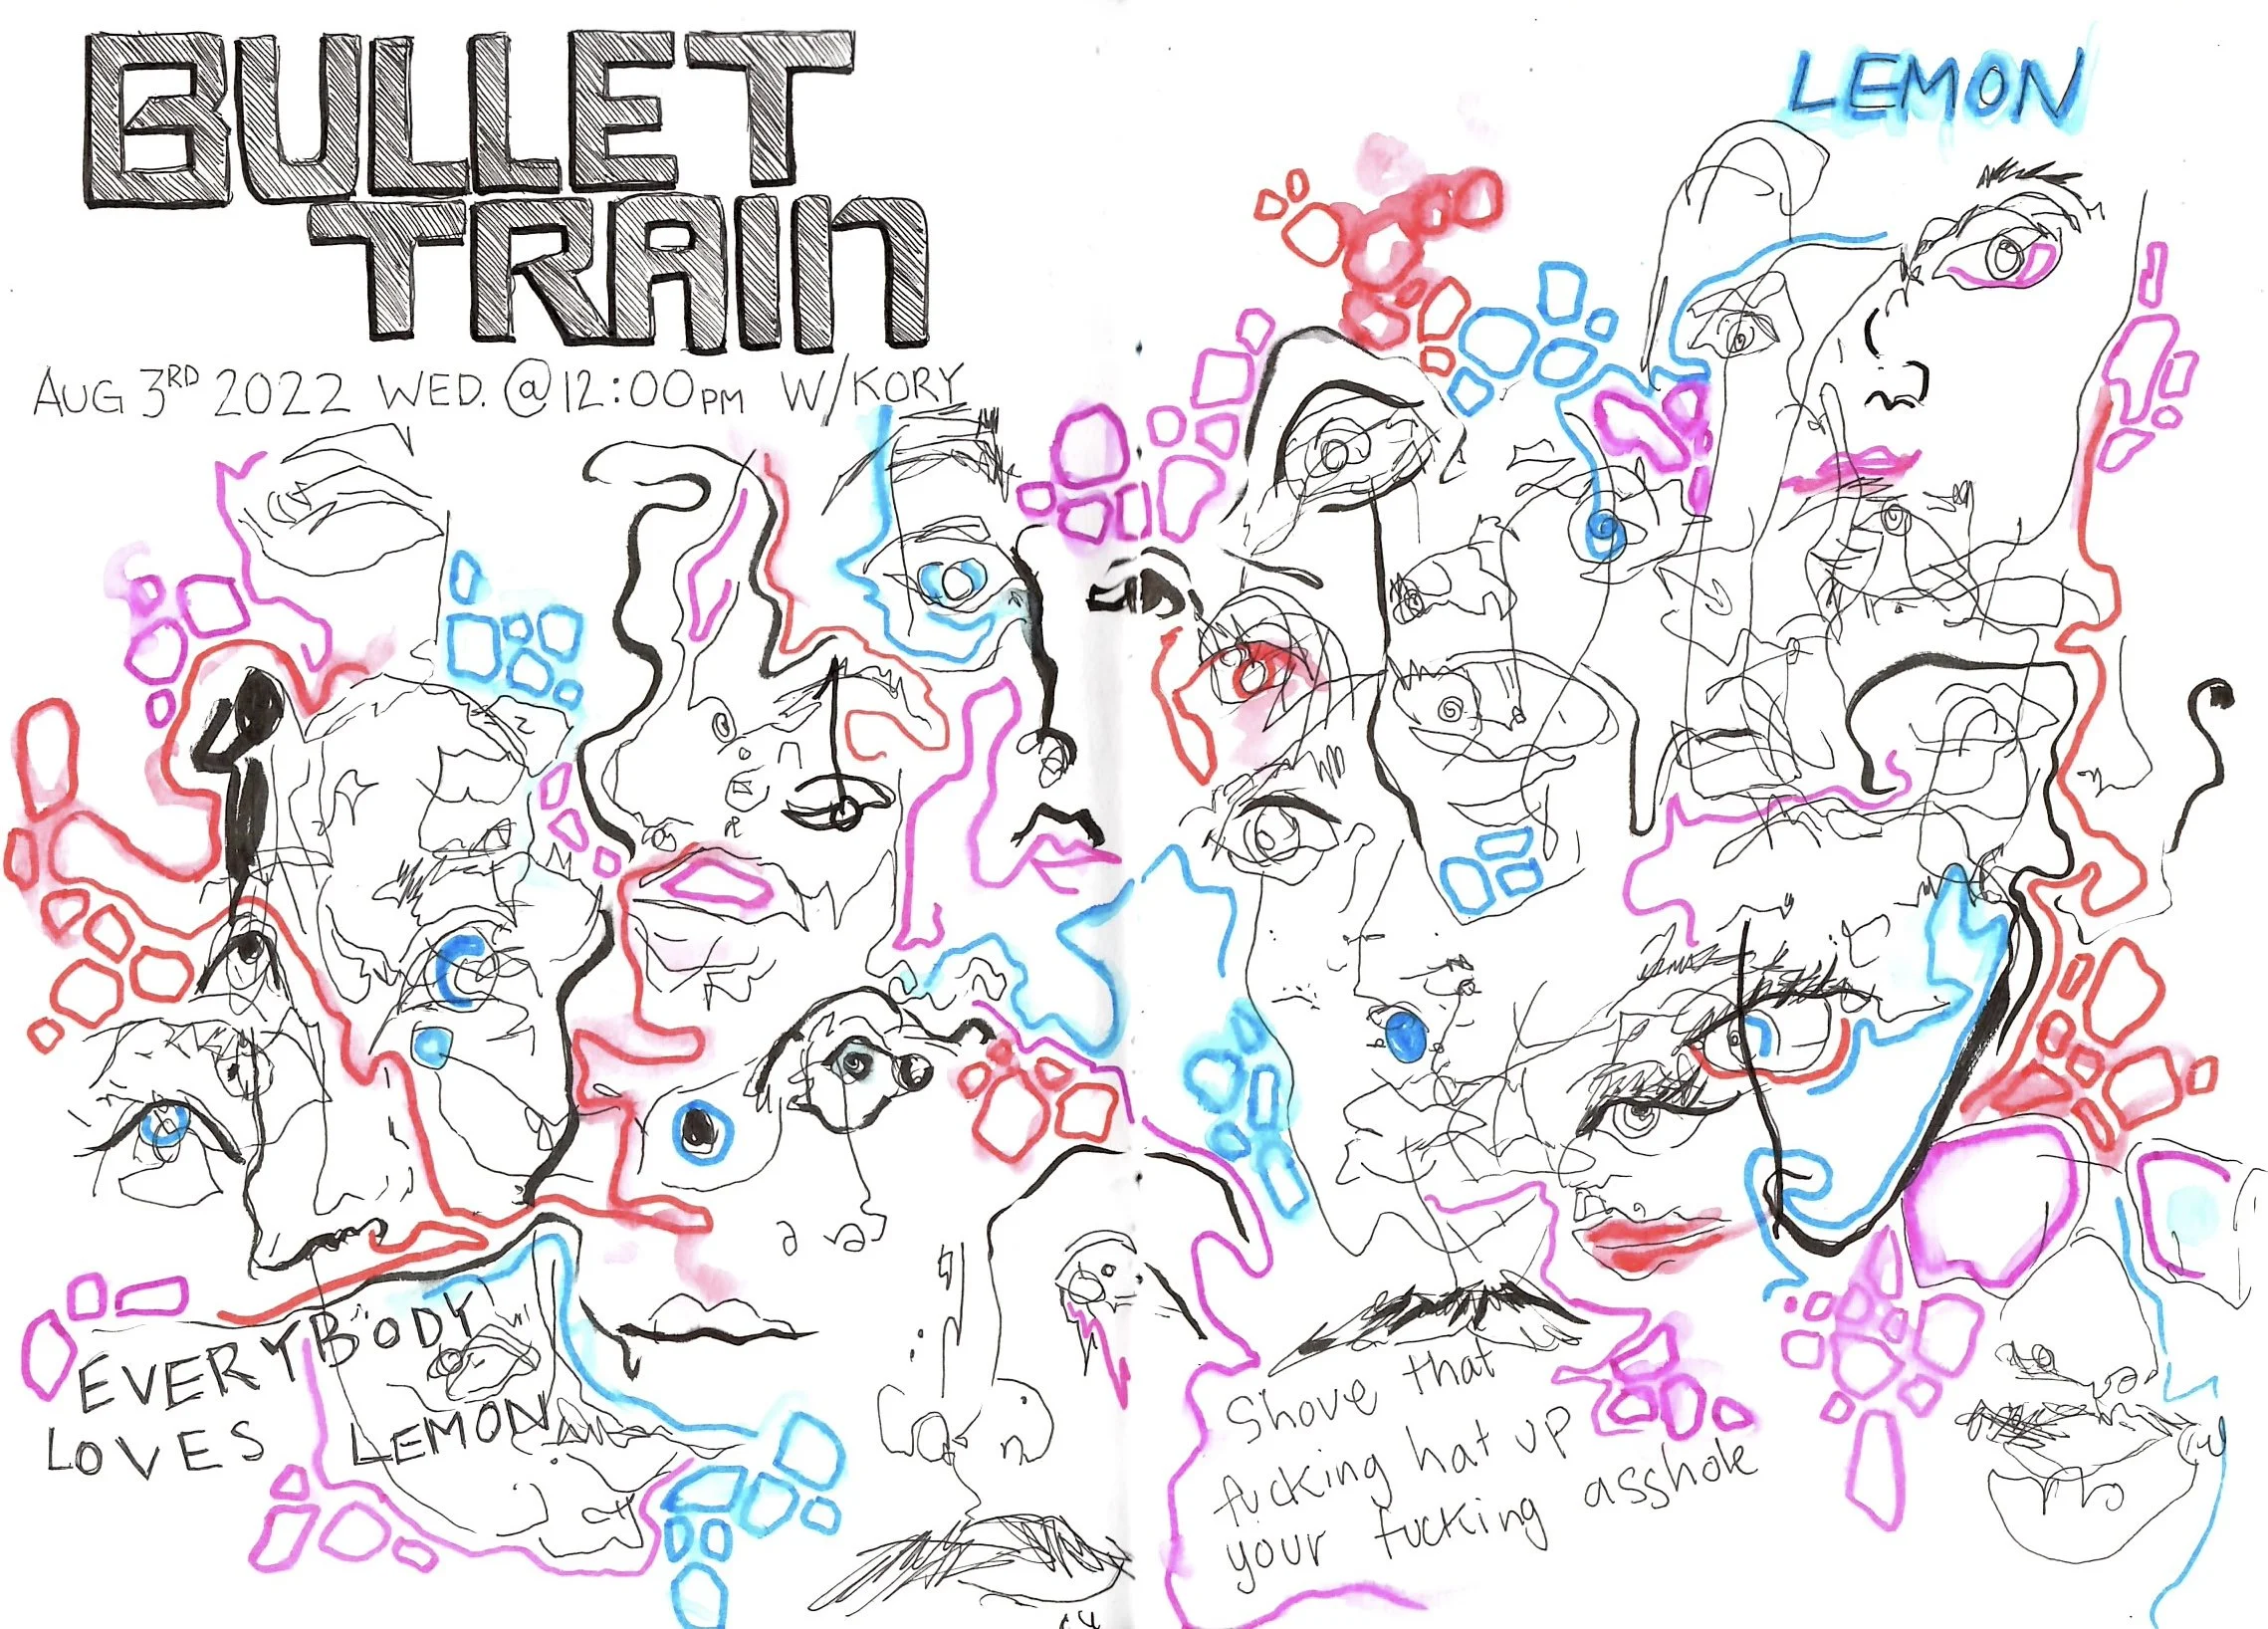 BULLET
TRAIN
AUG 3RD 2022 WED. @ 12:00PM W/KORY
LEMON
EVERYBODY
LOVES LEMON
Shove that
fucking hat up
your fucking asshole